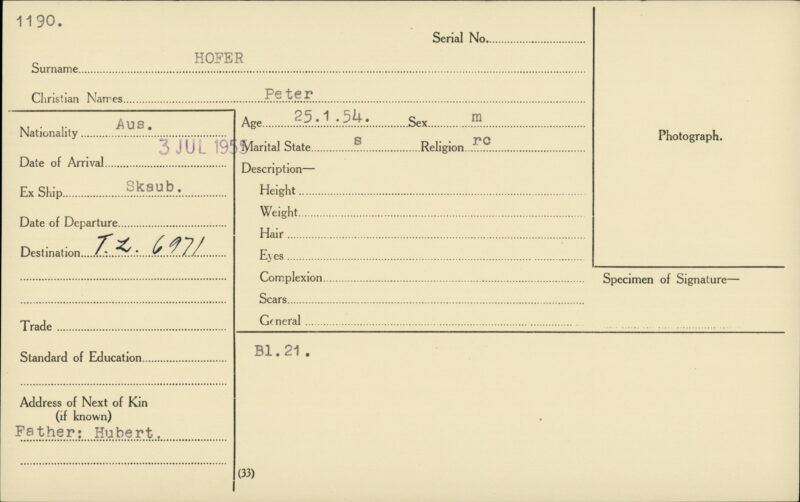 1190.
Serial No.
Surname HOFER
Christian Names Peter
Nationality Aus.
Date of Arrival 3 JUL 195
Ex Ship Skaub.
Date of Departure
Destination T.L. 6971
Trade
Standard of Education
Address of Next of Kin
(if known)
Father: Hubert.
Age 25.1.54. Sex m
Marital State s Religion rc
Description—
Height
Weight
Hair
Eyes
Complexion
Scars
General
Bl.21.
(33)
Photograph.
Specimen of Signature—